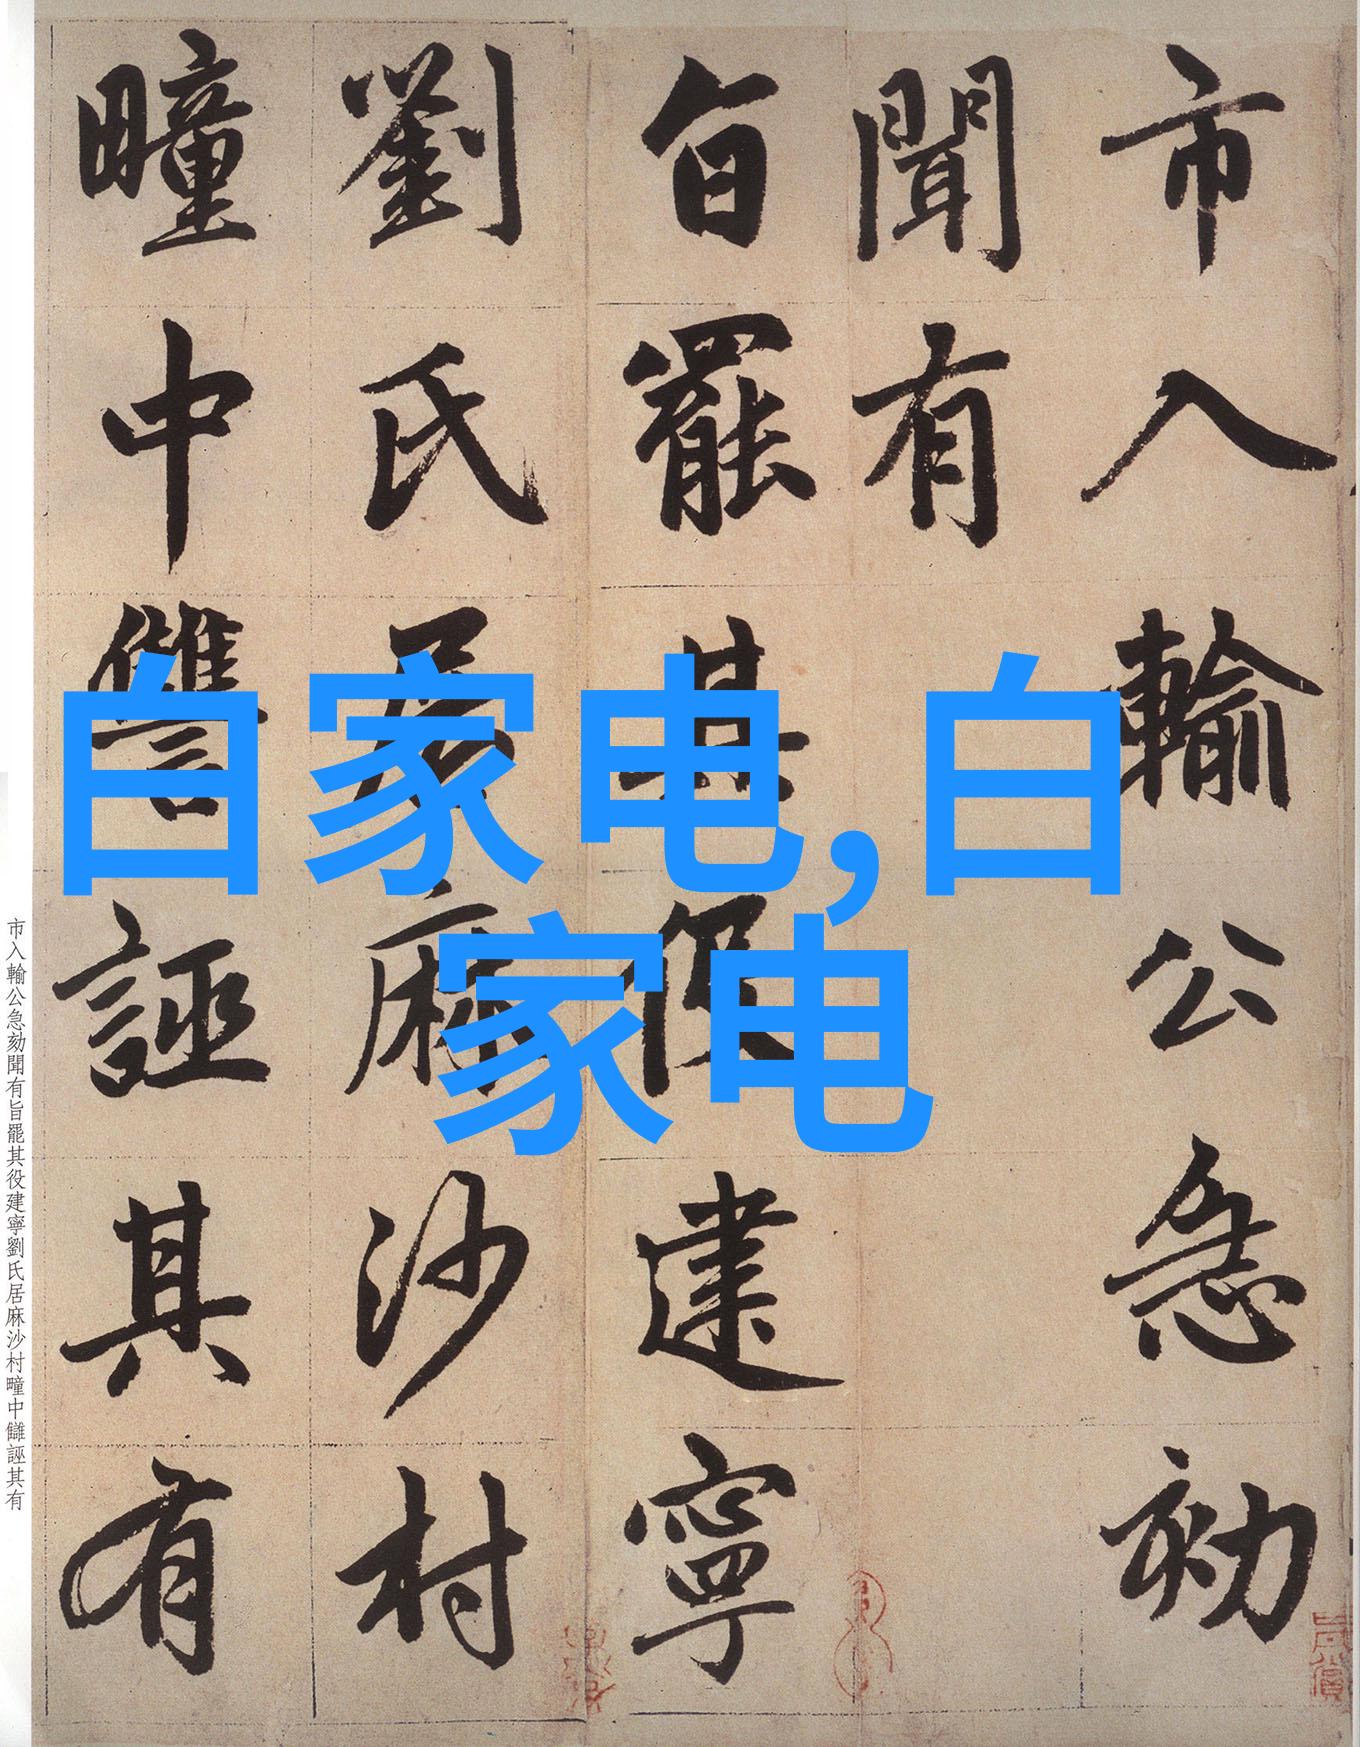 市入輸公急劾
聞有
旨罷其役建寧
劉氏居麻沙村
疃中讐誣其有
自家电,白
家电
市入輸公急劾聞有旨罷其役建寧劉氏居麻沙村疃中讎誣其有